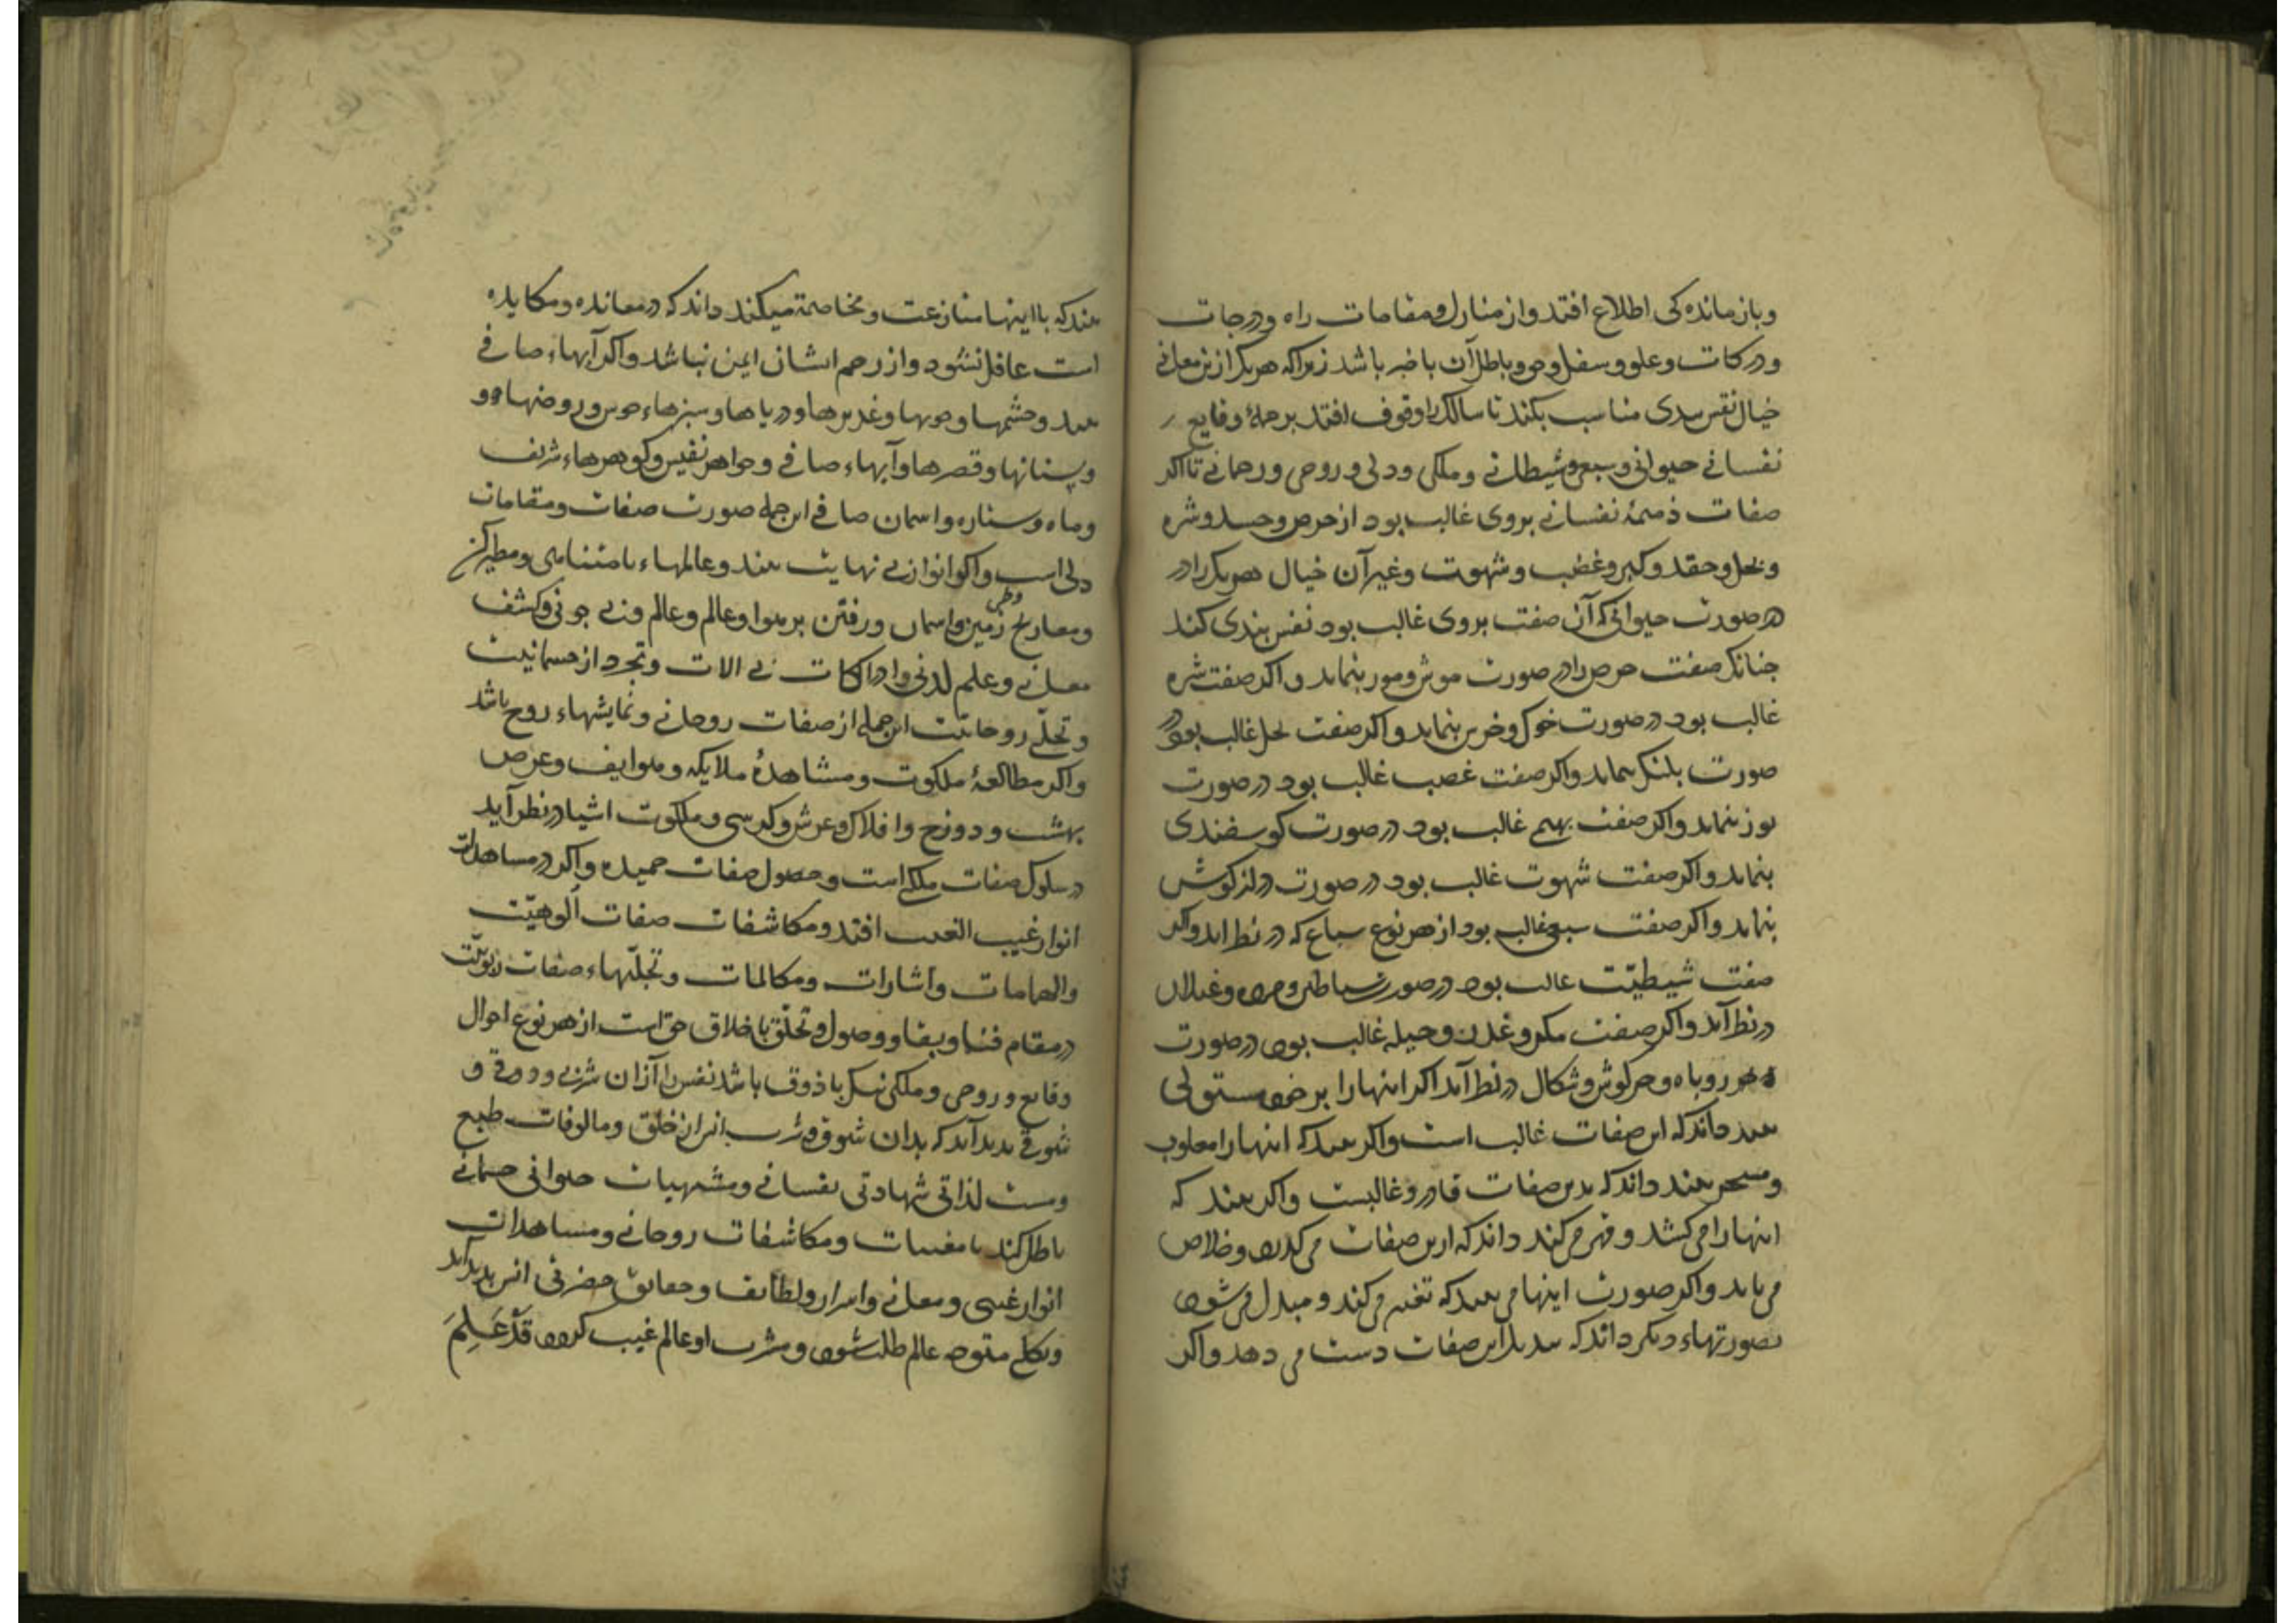 وبازماندهٔ کی اطلاع افتد واز منازل ومقامات راه ودرجات
ودرکات وعلو وسفل وحق وباطل آن باخبر باشد زیراکه هریک ازین معانی
خیال نقش بندی مناسب بکند تا سالک را وقوف افتد بر جملهٔ وقایع
نفسانی حیوانی وسبعی وشیطانی وملکی ودلی وروحی ورحمانی تا اکر
صفات ذمیمهٔ نفسانی بروی غالب بود از حرص وحسد وشره
وبخل وحقد وکبر وغضب وشهوت وغیر آن خیال هریک را در
صورت حیوانی که آن صفت بروی غالب بود نقش بندی کند
جنانک صفت حرص را در صورت موش ومور بنماید واکر صفت شره
غالب بود در صورت خوک وخرس بنماید واکر صفت بخل غالب بود در
صورت بلنک نماید واکر صفت غضب غالب بود در صورت
یوز نماید واکر صفت بهیمی غالب بود در صورت کوسفندی
بنماید واکر صفت شهوت غالب بود در صورت درازکوش
بنماید واکر صفت سبعی غالب بود از هر نوع سباع که در نظر اید واکر
صفت شیطنت غالب بود در صورت شیاطین ومرده وغیلان
در نظر آید واکر صفت مکر وغدر وحیله غالب بود در صورت
روباه وخرکوش وشکال در نظر آید اکر اینهارا بر خود مستولی
بیند داند که این صفات غالب است واکر بیند که اینهارا مغلوب
ومسخر بیند داند که بدین صفات قادر وغالبست واکر بیند که
اینهارا می کشد وقهر می کند داند که ازین صفات می کذرد وخلاص
می یابد واکر صورت اینها می بیند که تغیر می کند ومبدل می شود
بصورتهاء دیکر داند که تبدیل این صفات دست می دهد واکر
بیند که بااینها منازعت ومخاصمة میکند داند که در معانده ومکایده
است غافل نشود واز زحم ایشان ایمن نباشد واکر آبهاء صافی
بیند وچشمها وجویها وغدیرها ودریاها وسبزهاء خوش وروضها و
وبستانها وقصرها وآبهاء صافی وجواهر نفیس وکوهرهاء شریف
وماه وستاره واسمان صافی این جمله صورت صفات ومقامات
دلی است واکر انوار بی نهایت بیند وعالمهاء نامتناهی وطیران
ومعارج وطی زمین واسمان ورفتن بر هوا وعالم وعالم وبی جونی وکشف
معانی وعلم لدنی وادراکات بی الات وتجرد از جسمانیت
وتجلی روحانیت این جمله از صفات روحانی ونمایشهاء روح باشد
واکر مطالعهٔ ملکوت ومشاهدهٔ ملایکه وهواتف وعرض
بهشت ودوزخ وافلاک وعرش وکرسی وملکوت اشیا در نظر آید
در سلوک صفات ملکی است وحصول صفات حمیده واکر در مشاهدات
انوار غیب الغیب افتد ومکاشفات صفات ألوهیّت
والهامات واشارات ومکالمات وتجلّیهاء صفات ربوبیّت
در مقام فنا وبقا ووصول وتخلّق باخلاق حق است از هر نوع احوال
وقایع وروحی وملکی نیک باذوق باشد نفس را ازان شربی وذوقی و
شوقی بدید آید که بدان شوق وشرب انس از خلق ومالوفات طبع
ومست لذاتی شهادتی نفسانی ومشتهیات حیوانی جسمانی
باطل کند با مغیبات ومکاشفات روحانی ومشاهدات
انوار غیبی ومعانی واسرار ولطایف وحقایق حضرتی انس بدید آید
وبکلی متوجه عالم طلب شود ومشرب او عالم غیب کردد قَدْ عَلِمَ